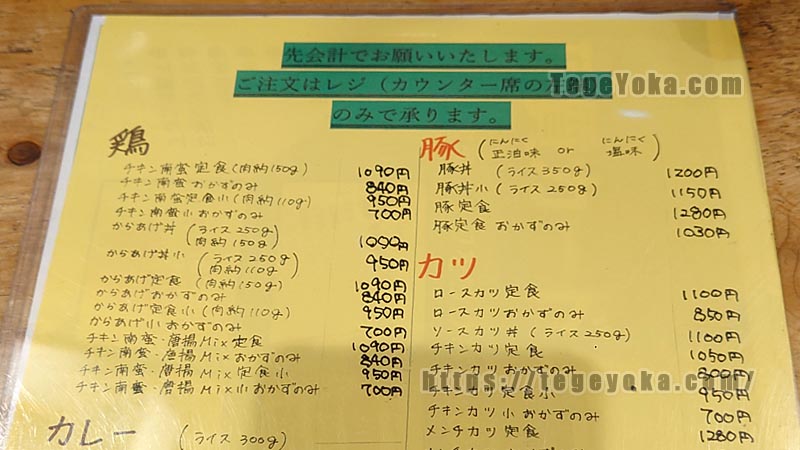 先会計でお願いいたします。
ご注文はレジ（カウンター席の左
のみで承ります。
TegeYoka.com
鶏
チキン南蛮定食(肉約150g) 1090円
チキン南蛮おかずのみ 840円
チキン南蛮定食小(肉約110g) 950円
チキン南蛮小おかずのみ 700円
からあげ丼 (ライス250g 肉約150g) 1000円
からあげ丼小 (ライス250g 肉約110g) 950円
からあげ定食 (肉約150g) 1090円
からあげおかずのみ 840円
からあげ定食小(肉約110g) 950円
からあげ小おかずのみ 700円
チキン南蛮・唐揚Mix定食 1090円
チキン南蛮・唐揚Mixおかずのみ 840円
チキン南蛮・唐揚Mix定食小 950円
チキン南蛮・唐揚Mix小おかずのみ 700円
カレー (ライス300g)
豚 (にんにく正油味 or にんにく塩味)
豚丼 (ライス350g) 1200円
豚丼小 (ライス250g) 1150円
豚定食 1280円
豚定食おかずのみ 1030円
カツ
ロースカツ定食 1100円
ロースカツおかずのみ 850円
ソースカツ丼(ライス250g) 1100円
チキンカツ定食 1050円
チキンカツおかずのみ 800円
チキンカツ定食小 950円
チキンカツ小おかずのみ 700円
メンチカツ定食 1280円
https://tegeyoka.com/